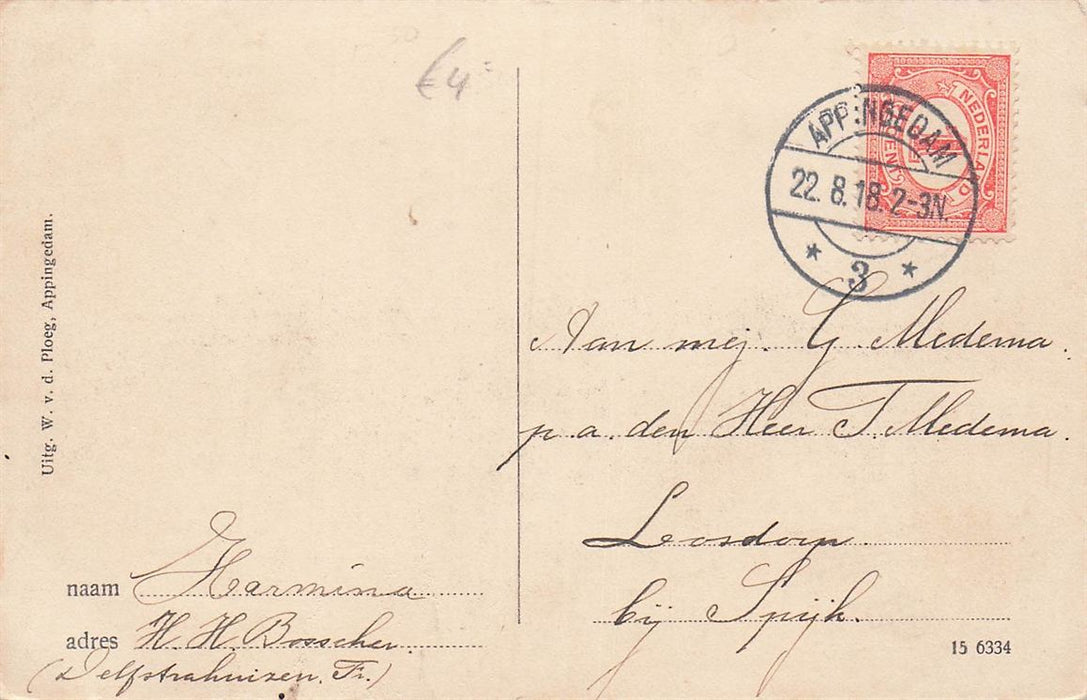 €4
NEDERLAND
APPINGEDAM
22.8.18.2-3N.
* 3 *
Aan mej. G. Medema.
p.a. den Heer T. Medema.
Losdorp
bij Spijk.
naam Harmina
adres H. H. Bosscher.
(Delfstrahuizen. Fr.)
Uitg. W. v. d. Ploeg, Appingedam.
15 6334